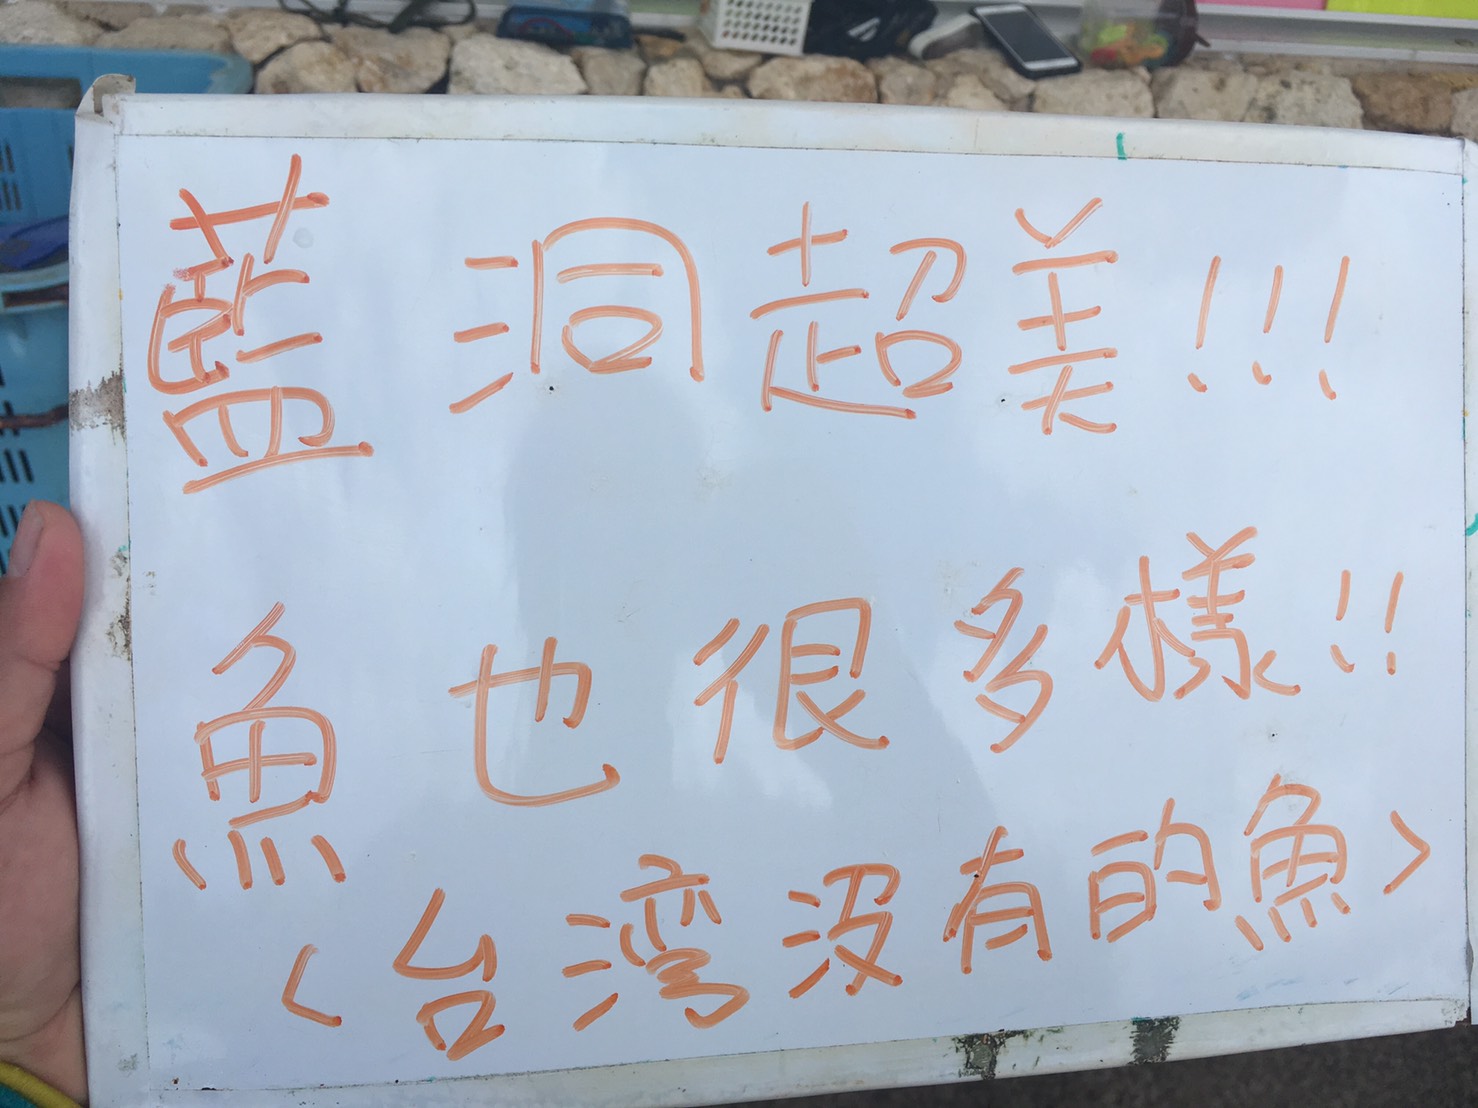 藍洞超美!!!
魚也很多樣!!
<台湾沒有的魚>